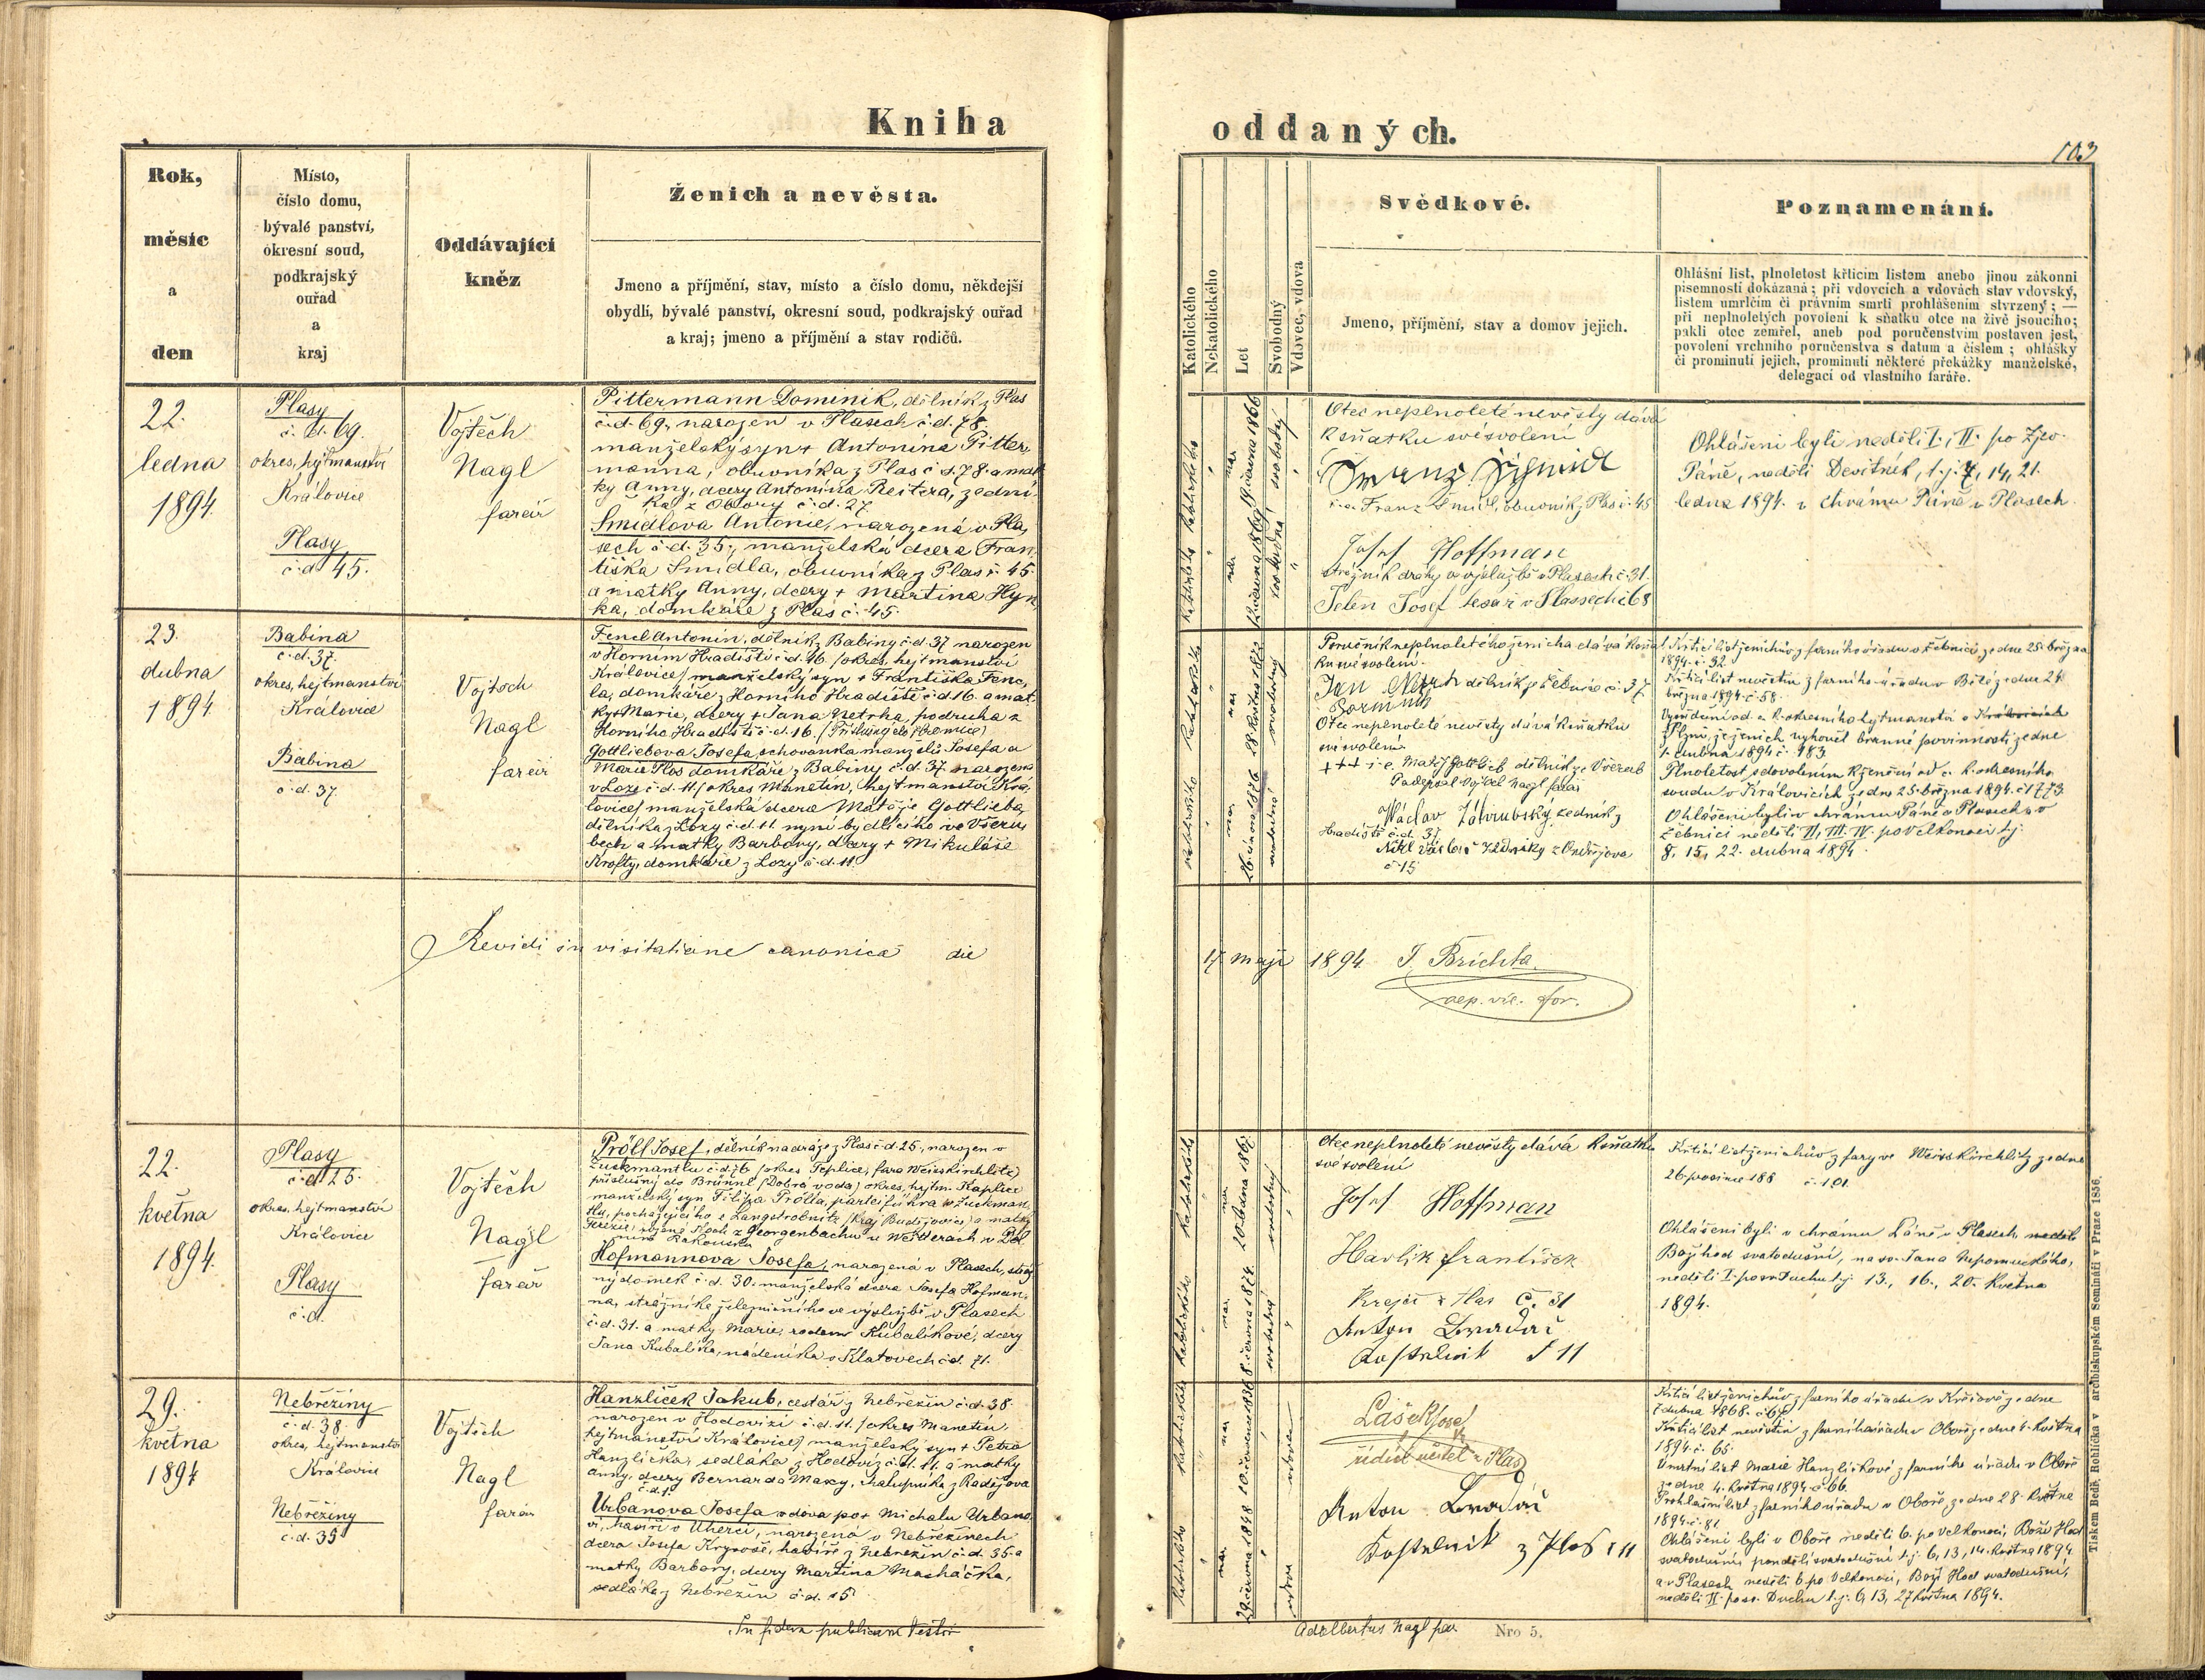 Kniha
Rok,
měsíc
a
den
Místo,
číslo domu,
bývalé panství,
okresní soud,
podkrajský
ouřad
a
kraj
Oddávající
kněz
Ženich a nevěsta.
Jmeno a příjmění, stav, místo a číslo domu, někdejší
obydlí, bývalé panství, okresní soud, podkrajský ouřad
a kraj; jmeno a příjmění a stav rodičů.
22.
ledna
1894.
Plasy
č. d. 69.
okres, hejtmanství
Kralovice
Plasy
č. d. 45.
Vojtěch
Nagl
farář
Pittermann Dominik, dělník z Plas
č. d. 69., narozen v Plasech č. d. 78.
manželský syn + Antonína Pitter,
manna, obuvníka z Plas č. d. 78 a mat
ky Anny, dcery Antonína Reitera, zední
ka z Obory č. d. 27.
Šmidlova Antonie, narozená v Pla,
sech č. d. 35., manželská dcera Fran,
tiška Šmidla, obuvníka z Plas č. 45.
a matky Anny, dcery + Martina Hyn,
ka, domkáře z Plas č. 45.
23.
dubna
1894
Babina
č. d. 37.
okres, hejtmanství
Kralovice
Babina
č. d. 37.
Vojtěch
Nagl
farář
Fencl Antonín, dělník z Babiny č. d. 37 narozen
v Horním Hradišti č. d. 16. /okres, hejtmanství
Kralovice/ manželský syn + Františka Fenc,
la, domkáře z Horního Hradiště č. d. 16. a mat,
ky + Marie, dcery + Jana Netrha, podruha z
Horního Hradiště č. d. 16.
Gottliebova Josefa, schovanka manželů Josefa a
Marie Plos domkáře z Babiny č. d. 37. narozena
v Loze č. d. 11. /okres Manetín, hejtmanství Kra,
lovice/ manželská dcera Matěje Gottlieba,
dělníka z Lozy č. d. 11. nyní bydlícího ve Všeru,
bech a matky Barbory, dcery + Mikuláše
Krofty, domkáře z Lozy č. d. 11.
Revidi in visitatione canonica die
22.
května
1894.
Plasy
č. d. 25.
okres, hejtmanství
Kralovice
Plasy
č. d.
Vojtěch
Nagl
farář
Pröll Josef, dělník na dráze z Plas č. d. 25., narozen v
Zuckmantlu č. d. 76 /okres Teplice, fara Weisskirchlitz/
příslušný do Brünnl (Dobrá voda) okres, hejtm. Kaplice
manželský syn Filipa Prölla, partieführa v Zuckman,
tlu, pocházejícího z Langstrobnitz /Kraj Budějovice/ a matky
Terezie, rozené Hoch z Georgenbachu u Weitterach v Dol
ním Rakousku
Hofmannova Josefa, narozená v Plasech, stráž
ný domek č. d. 30. manželská dcera Josefa Hofman,
na, strážníka železničního ve výslužbě v Plasech
č. d. 31. a matky Marie, rodem Kubalíkové, dcery
Jana Kubalíka, nádeníka v Klatovech č. d. 71.
29.
května
1894
Nebřeziny
č. d. 38.
okres, hejtmanství
Kralovice
Nebřeziny
č. d. 35
Vojtěch
Nagl
farář
Hanzlíček Jakub, cestář z Nebřezin č. d. 38
narozen v Hodovizi č. d. 11. /okres Manetín,
hejtmanství Kralovice/ manželský syn + Petra
Hanzlíčka, sedláka z Hodovíz č. d. 11. a matky
Anny, dcery Bernarda Maxy, chalupníka z Radějova
č. d. 1.
Urbanova Josefa vdova po + Michalu Urbano,
vi, havíři v Uherci, narozená v Nebřezinech
dcera Josefa Krynoše, havíře z Nebřezin č. d. 35. a
matky Barbory, dcery Martina Macháčka,
sedláka z Nebřezin č. d. 15.
In fidem publicam Testor
oddaných.
103
Katolického
Nekatolického
Let
Svobodný
Vdovec, vdova
Svědkové.
Jmeno, příjmění, stav a domov jejich.
Poznamenání.
Ohlášní list, plnoletost křticím listem anebo jinou zákonní
písemností dokázaná; při vdovcích a vdovách stav vdovský,
listem umrlčím či právním smrtí prohlášením stvrzený; —
při neplnoletých povolení k sňatku otce na živě jsoucího;
pakli otec zemřel, aneb pod poručenstvím postaven jest,
povolení vrchního poručenstva s datum a číslem; ohlášky
či prominutí jejich, prominutí některé překážky manželské,
delegací od vlastního faráře.
Otec neplnoleté nevěsty dává
k sňatku své svolení
Franz Schmidl
i. e. Franz Šmidl, obuvník z Plas č. 45
Josef Hoffman
strážník dráhy ve výslužbě v Plasech č. 31.
Jelen Josef tesař v Plassech č 68
Ohlášeni byli neděli I., II. po Zjev.
Páně, neděli Devítník, t. j. 7, 14, 21.
ledna 1894. v chrámu Páně v Plasech.
Poručník neplnoletého ženicha dává k sňat
ku své svolení.
Jan Netrh dělník z Žebnice č. 37
Otec neplnoleté nevěsty dává k sňatku
své svolení
+++ i. e. Matěj Gottlieb dělník ve Všerub
Podepsal Vojtěch Nagl farář
Václav Zábrubský zedník z
Hradiště č. d. 37
č 15
Křticí list ženichův z farního úřadu v Žebnici ze dne 25. března
1894. č. 32
Křticí list nevěstin z farního úřadu v Bílé ze dne 24.
března 1894. č. 58.
Vysvědčení od c. k. okresního hejtmanství v Kralovicích
v Plzni, že ženich vyhověl branné povinnosti ze dne
1. dubna 1894 č. 183.
Plnoletost s dovolením k ženění od c. k. okresního
soudu v Kralovicích ze dne 25. března 1894. č. 1773
Ohlášeni byli v chrámu Páně v Plasech a v
Žebnici neděli II, III. IV. po Velkonoci t. j.
8, 15, 22. dubna 1894
17 Maji 1894. J. Brichta
aep. vic. for.
Otec neplnoleté nevěsty dává k sňatku
své svolení
Josef Hoffman
Havlík František
Krejčí z Plas č. 31
Anton Bradáč
Kostelnik č 11
Křticí list ženichův z fary ve Weisskirchlitz ze dne
26. prosince 188 č. 101.
Ohlášeni byli v chrámu Páně v Plasech neděli
Boží hod svatodušní, na sv. Jana Nepomuckého,
neděli I. po sv. Duchu t. j. 13., 16., 20. května
1894.
Lášek Josef
řídící učitel v Plas
Anton Bradáč
Kostelnik z Plas č 11
Křticí list ženichův z farního úřadu v Kršicově ze dne
7 dubna 1868.
Křticí list nevěstin z farního úřadu v Oboře ze dne 4. května
1894. č. 65.
Úmrtní list Marie Hanzlíčkové z farního úřadu v Oboře
ze dne 4. května 1894 č. 66.
Prohlašní list z farního úřadu v Oboře, ze dne 28. května
1894. č. 81.
Ohlášeni byli v Oboře neděli 6. po Velkonoci, Boží Hod
svatodušní, pondělí svatodušní t. j. 6, 13, 14. května 1894
a v Plasech neděli 6 po Velkonoci, Boží Hod svatodušní,
neděli II. po sv. Duchu t. j. 6, 13, 27 května 1894.
Adalbertus Nagl par.
Nro 5.
Tiskem Bedř. Rohlíčka v arcibiskupském Semináři v Praze 1856.